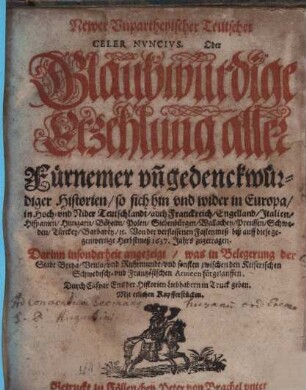 Newer Vnpartheyischer Teutscher
CELER NVNCIVS. Oder
Glaubwürdige
Erzehlung aller
Fürnemer vñ gedenckwür-
diger Historien / so sich hin vnd wider in Europa /
in Hoch- vnd Nider Teutschlandt / auch Franckreich / Engelland / Italien /
Hispanien / Hungarn / Böhem / Polen / Siebenbürgen / Wallachey / Preussen / Schwe-
den / Türckey / Barbarey / ꝛc. Von der verflossenen Fastenmeß biß auff diese ge-
genwertige Herbstmeß 1637. Jahrs zugetragen,
Darinn insonderheit angezeigt / was in Belegerung der
Statt Breda Venlo / vnd Ruhrmunde / vnd sonsten zwischen den Keiserischen
Schwedisch- vnd Frantzösischen Armeen fürgelauffen.
Durch Caspar Ens der Historien liebhabern in Truck geben.
Mit etlichen Kupfferstücken.
Getruckt zu Cöllen / bey Peter von Brachel vnter